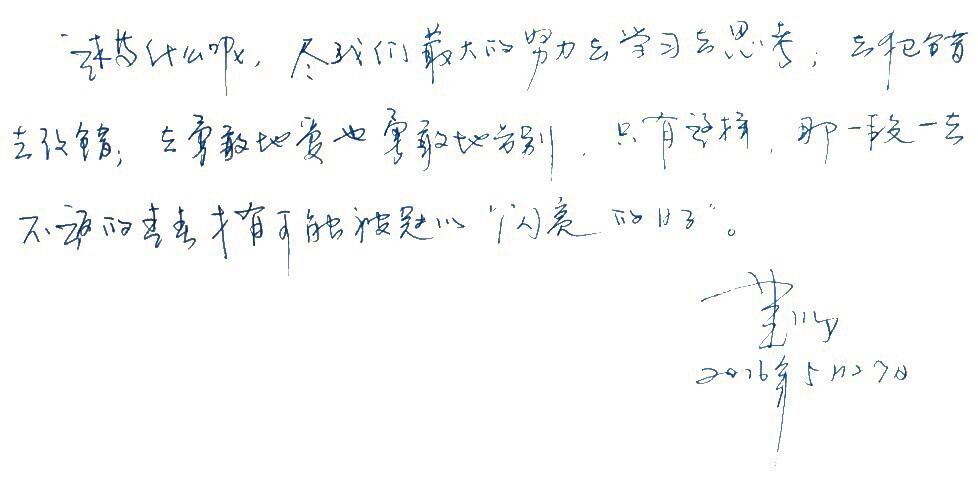 读为什么呢，尽我们最大的努力去学习去思考；去犯错
去改错；去勇敢地爱也勇敢地告别，只有这样，那一段一去
不返的青春才有可能被冠以“闪亮的日子”。
2016年5月27日